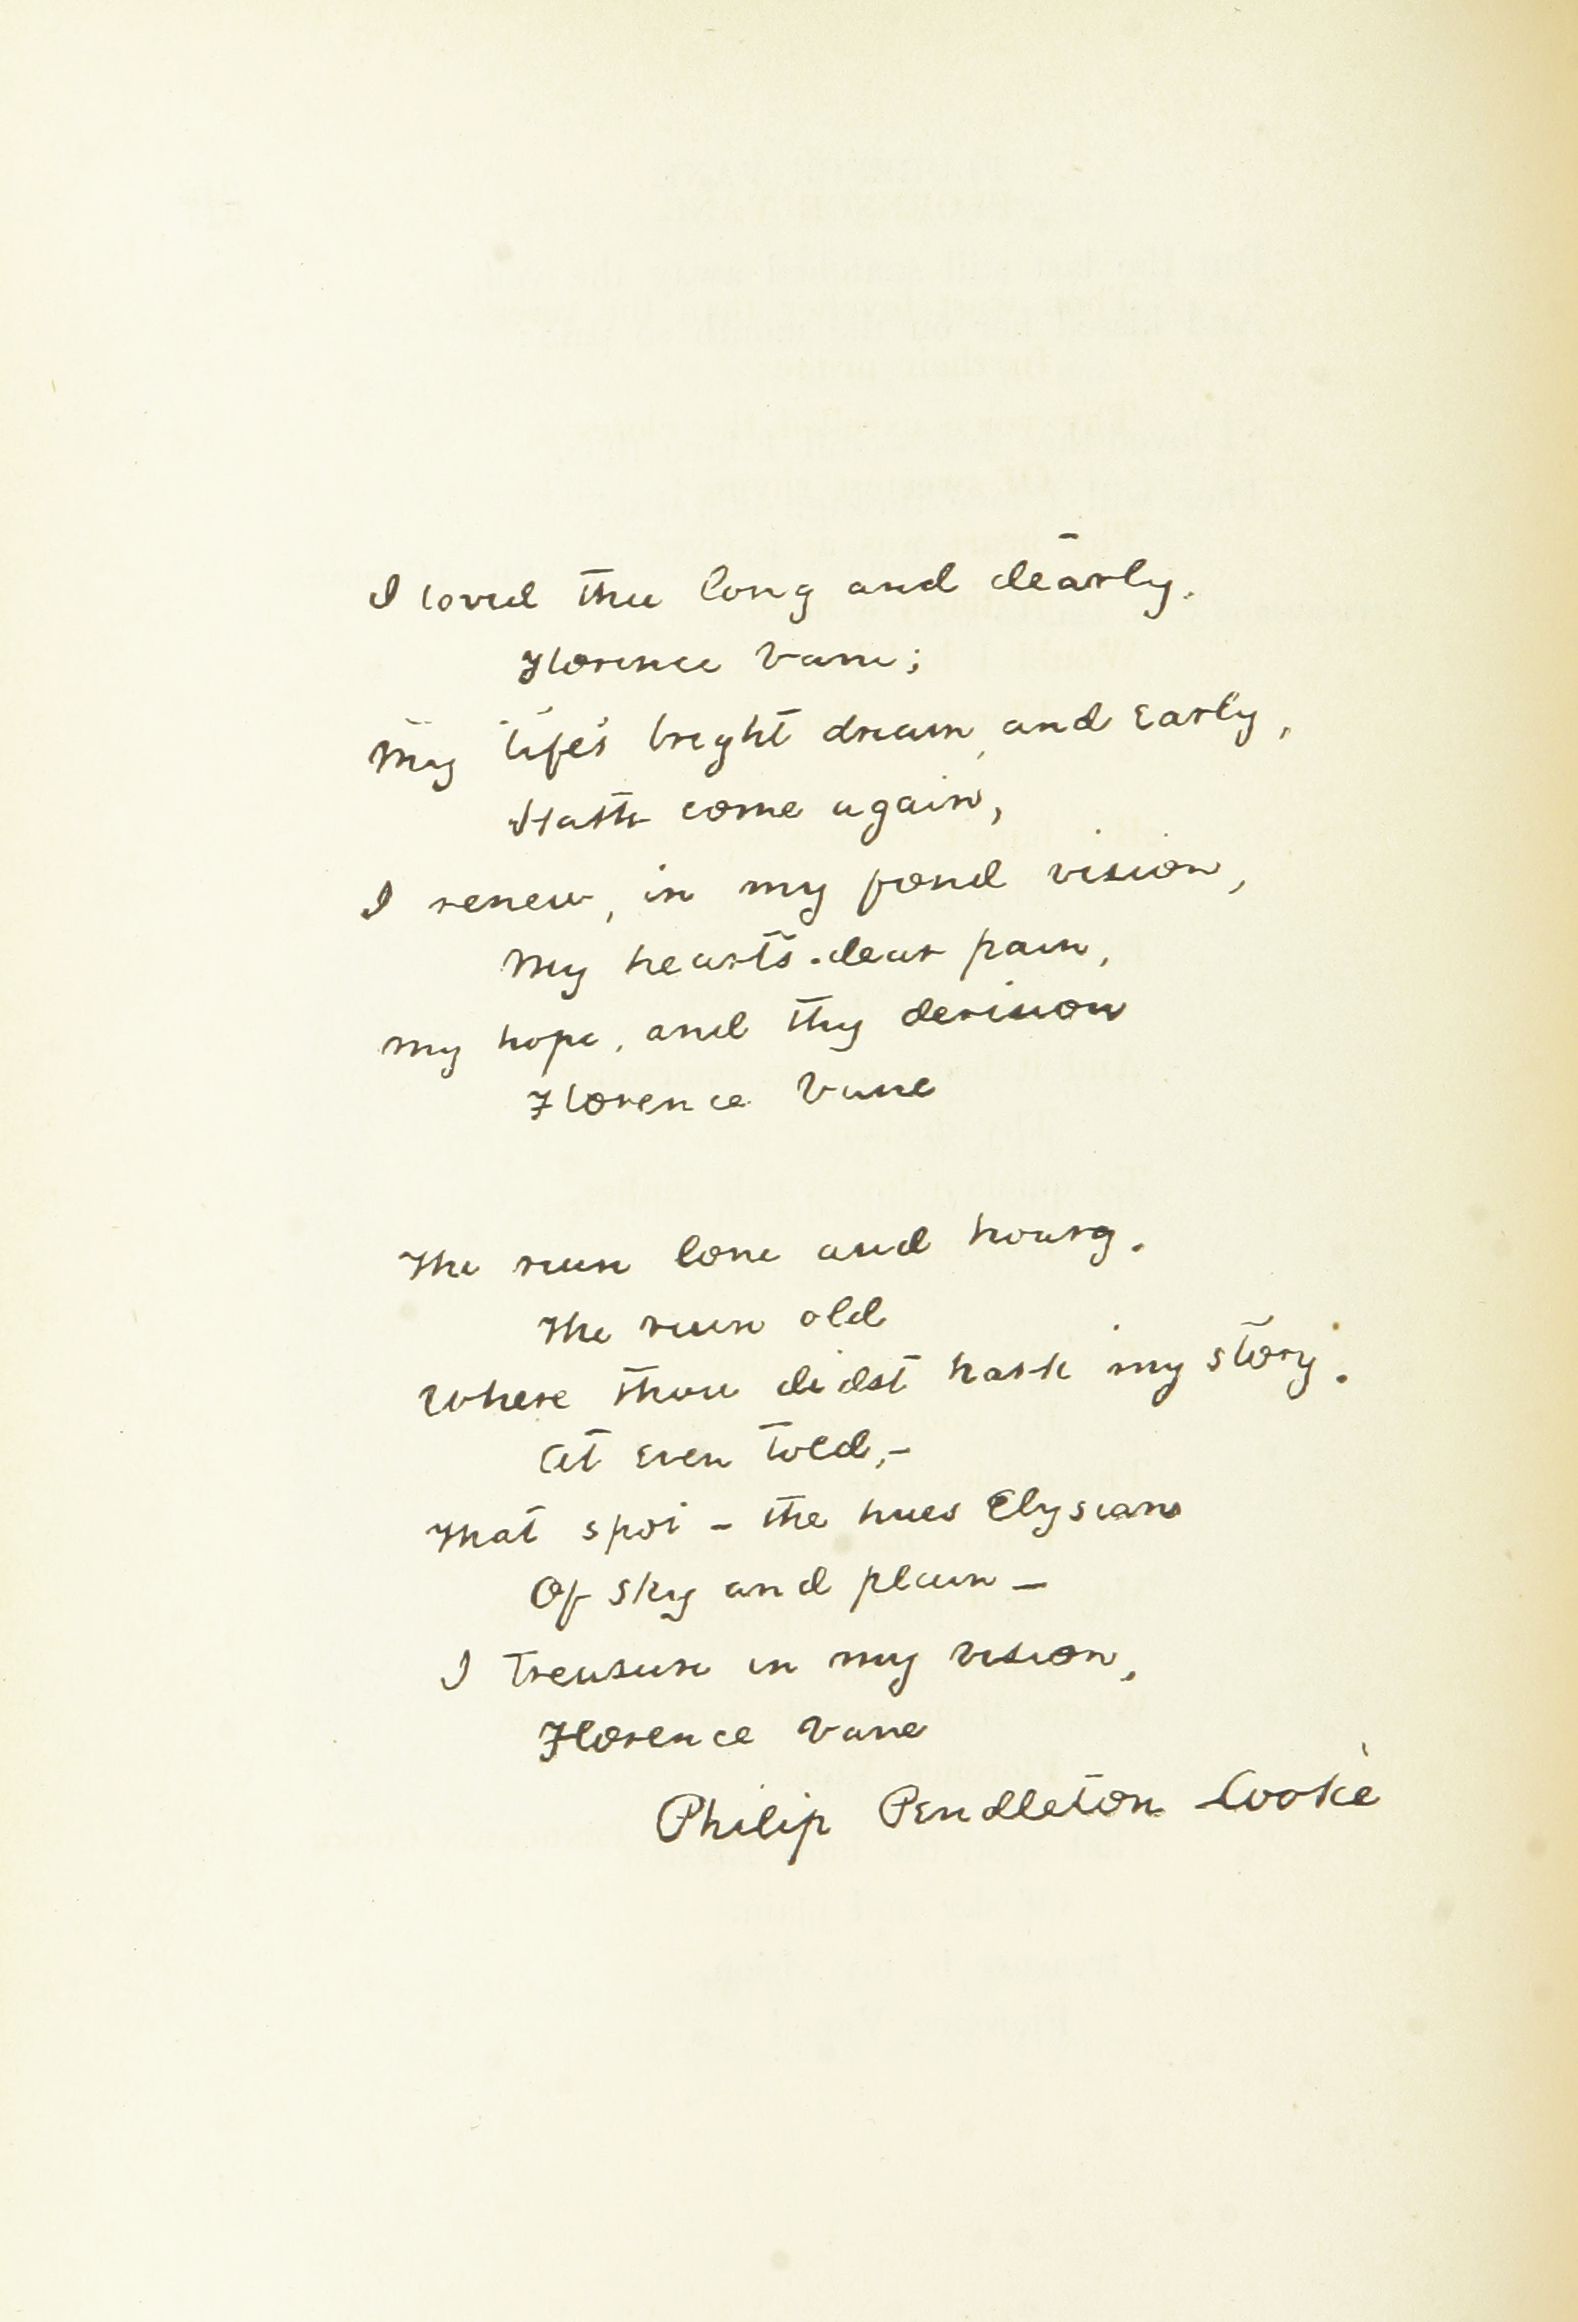 I loved thee long and dearly,
Florence Vane;
My life's bright dream, and early,
Hath come again,
I renew, in my fond vision,
My heart's dear pain,
My hope, and thy derision
Florence Vane
The ruin lone and hoary,
The ruin old
Where thou didst hark my story,
At even told,-
That spot - the hues Elysian
Of sky and plain -
I treasure in my vision,
Florence Vane
Philip Pendleton Cooke